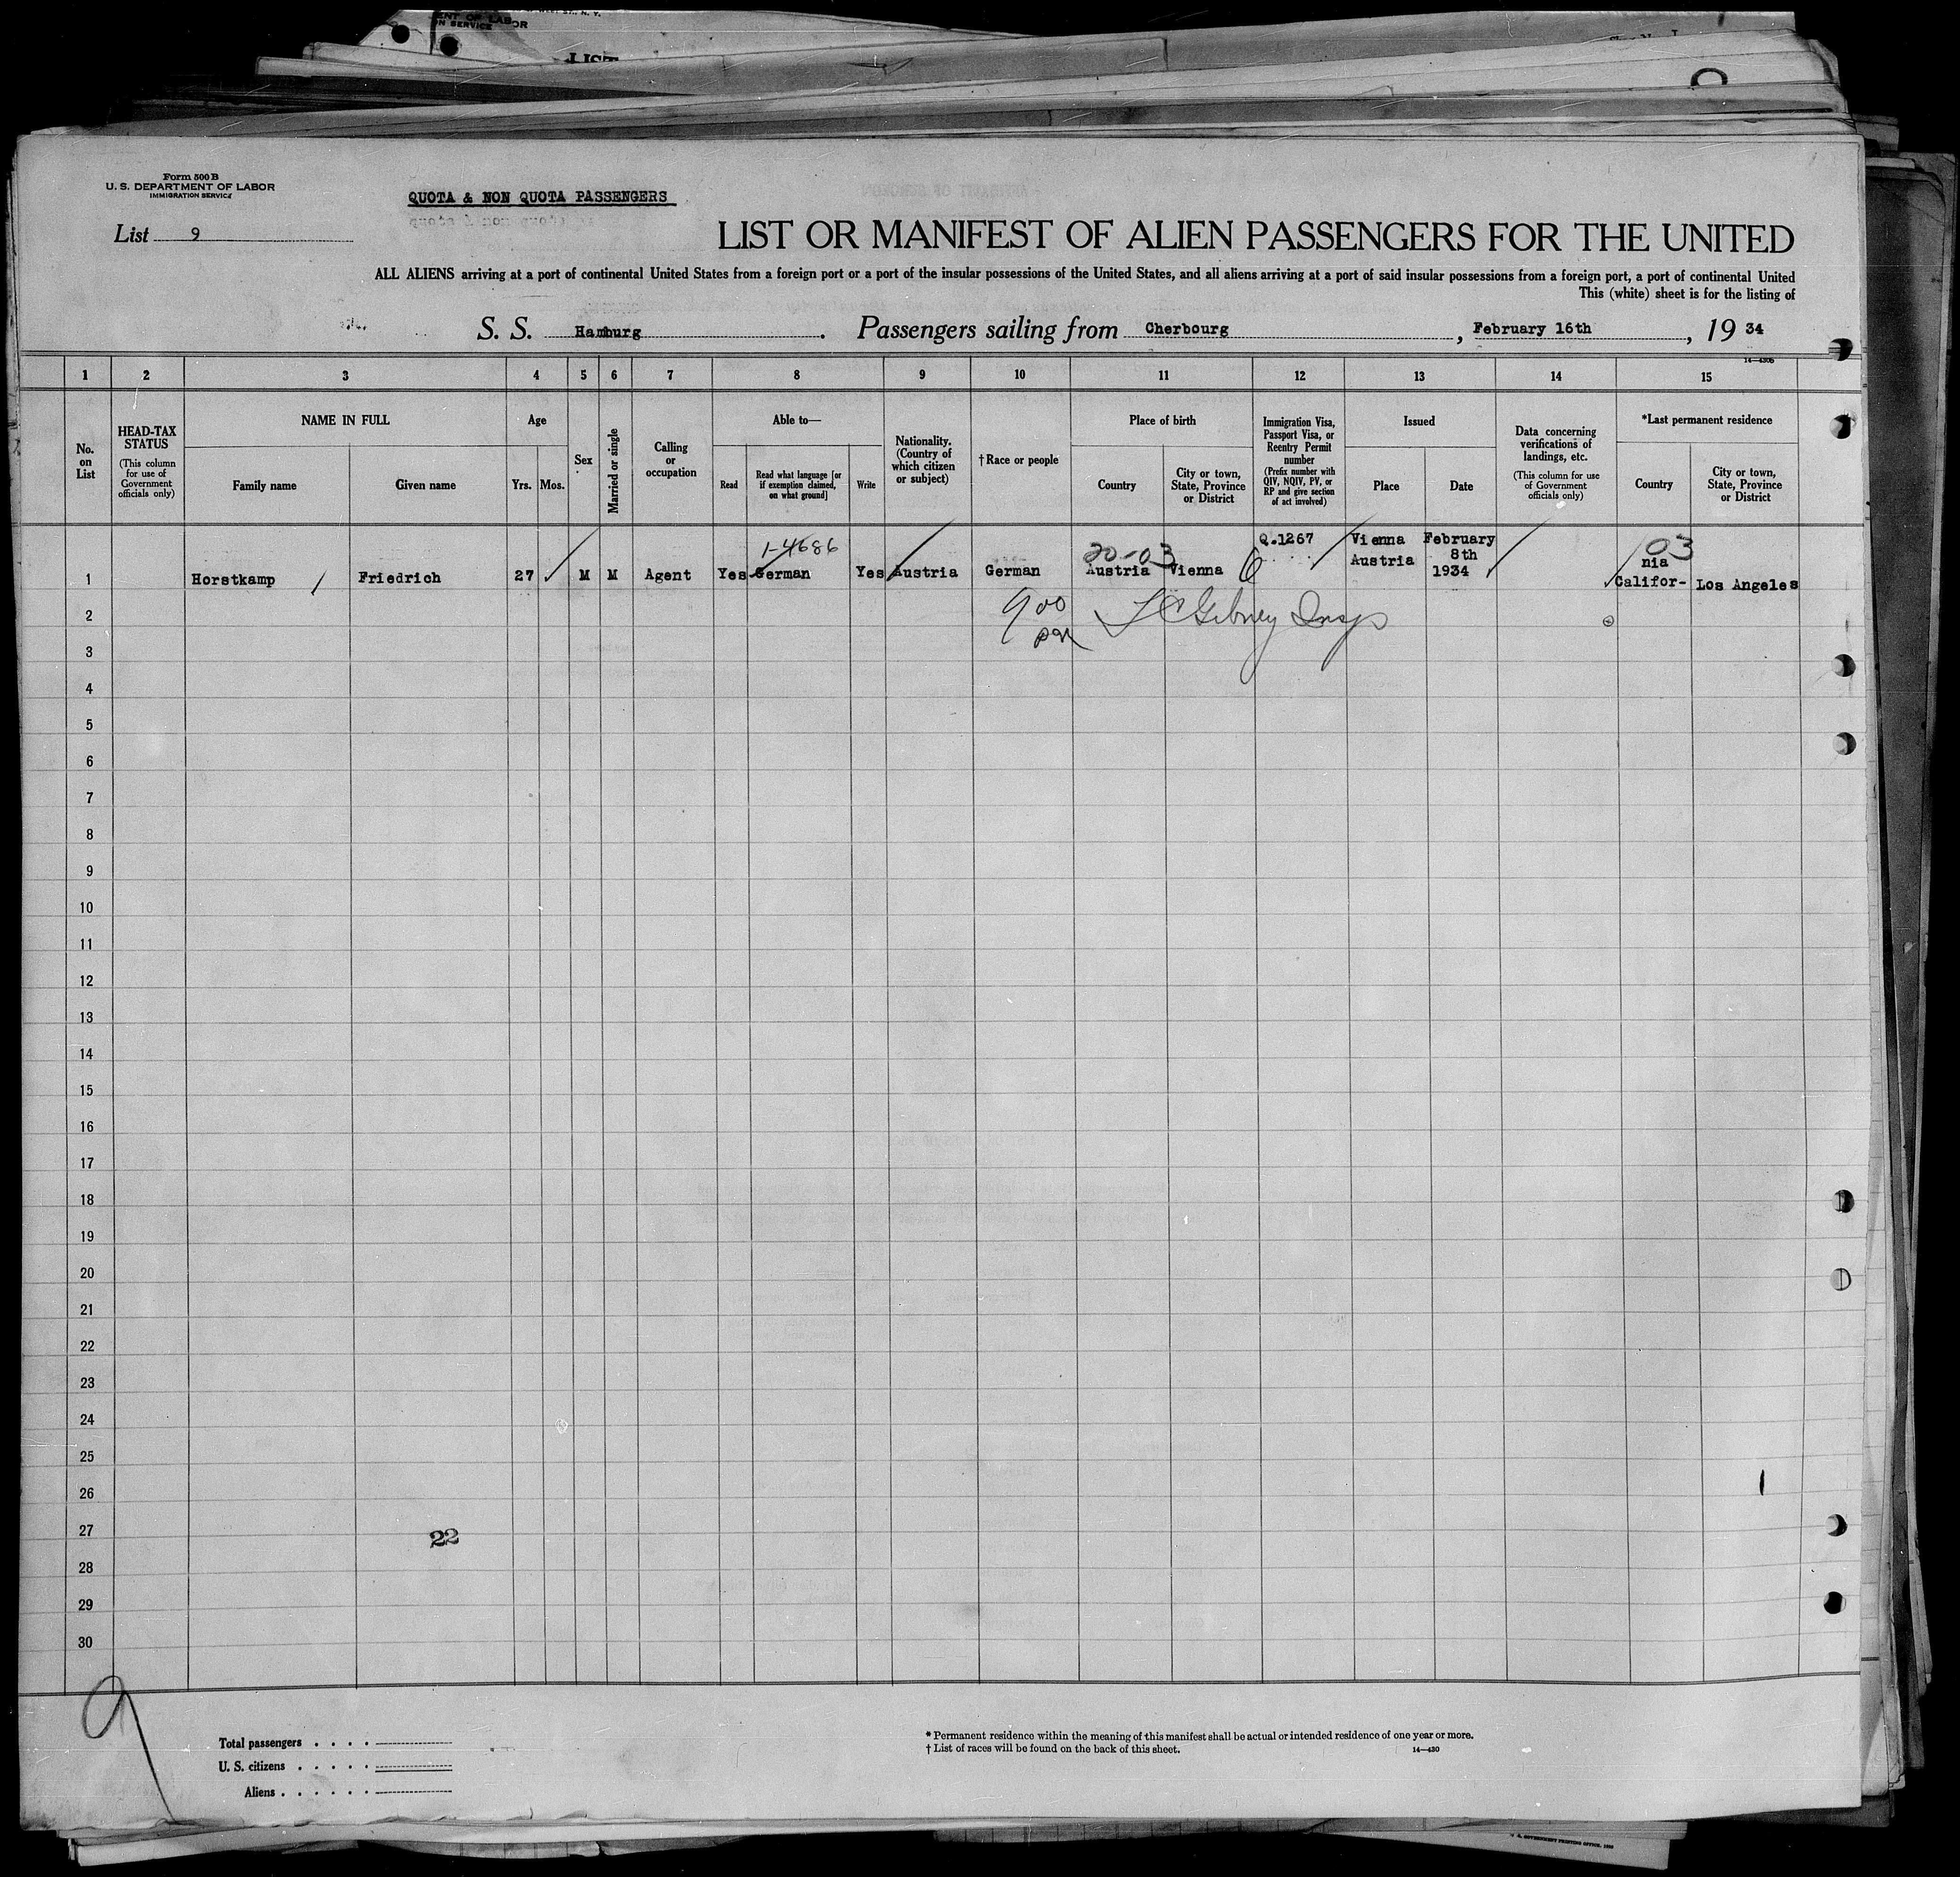 ENT OF LABOR
ON SERVICE
LIST
Form 500 B
U. S. DEPARTMENT OF LABOR
IMMIGRATION SERVICE
QUOTA & NON QUOTA PASSENGERS
List 9
LIST OR MANIFEST OF ALIEN PASSENGERS FOR THE UNITED
ALL ALIENS arriving at a port of continental United States from a foreign port or a port of the insular possessions of the United States, and all aliens arriving at a port of said insular possessions from a foreign port, a port of continental United
This (white) sheet is for the listing of
S. S. Hamburg. Passengers sailing from Cherbourg, February 16th, 19 34
1 2 3 4 5 6 7 8 9 10 11 12 13 14 15
No. on List
HEAD-TAX STATUS
(This column for use of Government officials only)
NAME IN FULL
Family name
Given name
Age
Yrs.
Mos.
Sex
Married or single
Calling or occupation
Able to—
Read
Read what language [or if exemption claimed, on what ground]
Write
Nationality. (Country of which citizen or subject)
†Race or people
Place of birth
Country
City or town, State, Province or District
Immigration Visa, Passport Visa, or Reentry Permit number
(Prefix number with QIV, NQIV, PV, or RP and give section of act involved)
Issued
Place
Date
Data concerning verifications of landings, etc.
(This column for use of Government officials only)
*Last permanent residence
Country
City or town, State, Province or District
1-4686
20-03
Q.1267
Vienna
February
03
Austria
8th
nia
1 Horstkamp Friedrich 27 M M Agent Yes German Yes Austria German Austria Vienna 1934 Califor- Los Angeles
2
900
Gibney Insp
3
4
5
6
7
8
9
10
11
12
13
14
15
16
17
18
19
20
21
22
23
24
25
26
27
22
28
29
30
9
Total passengers
U. S. citizens
Aliens
* Permanent residence within the meaning of this manifest shall be actual or intended residence of one year or more.
† List of races will be found on the back of this sheet.
14—430